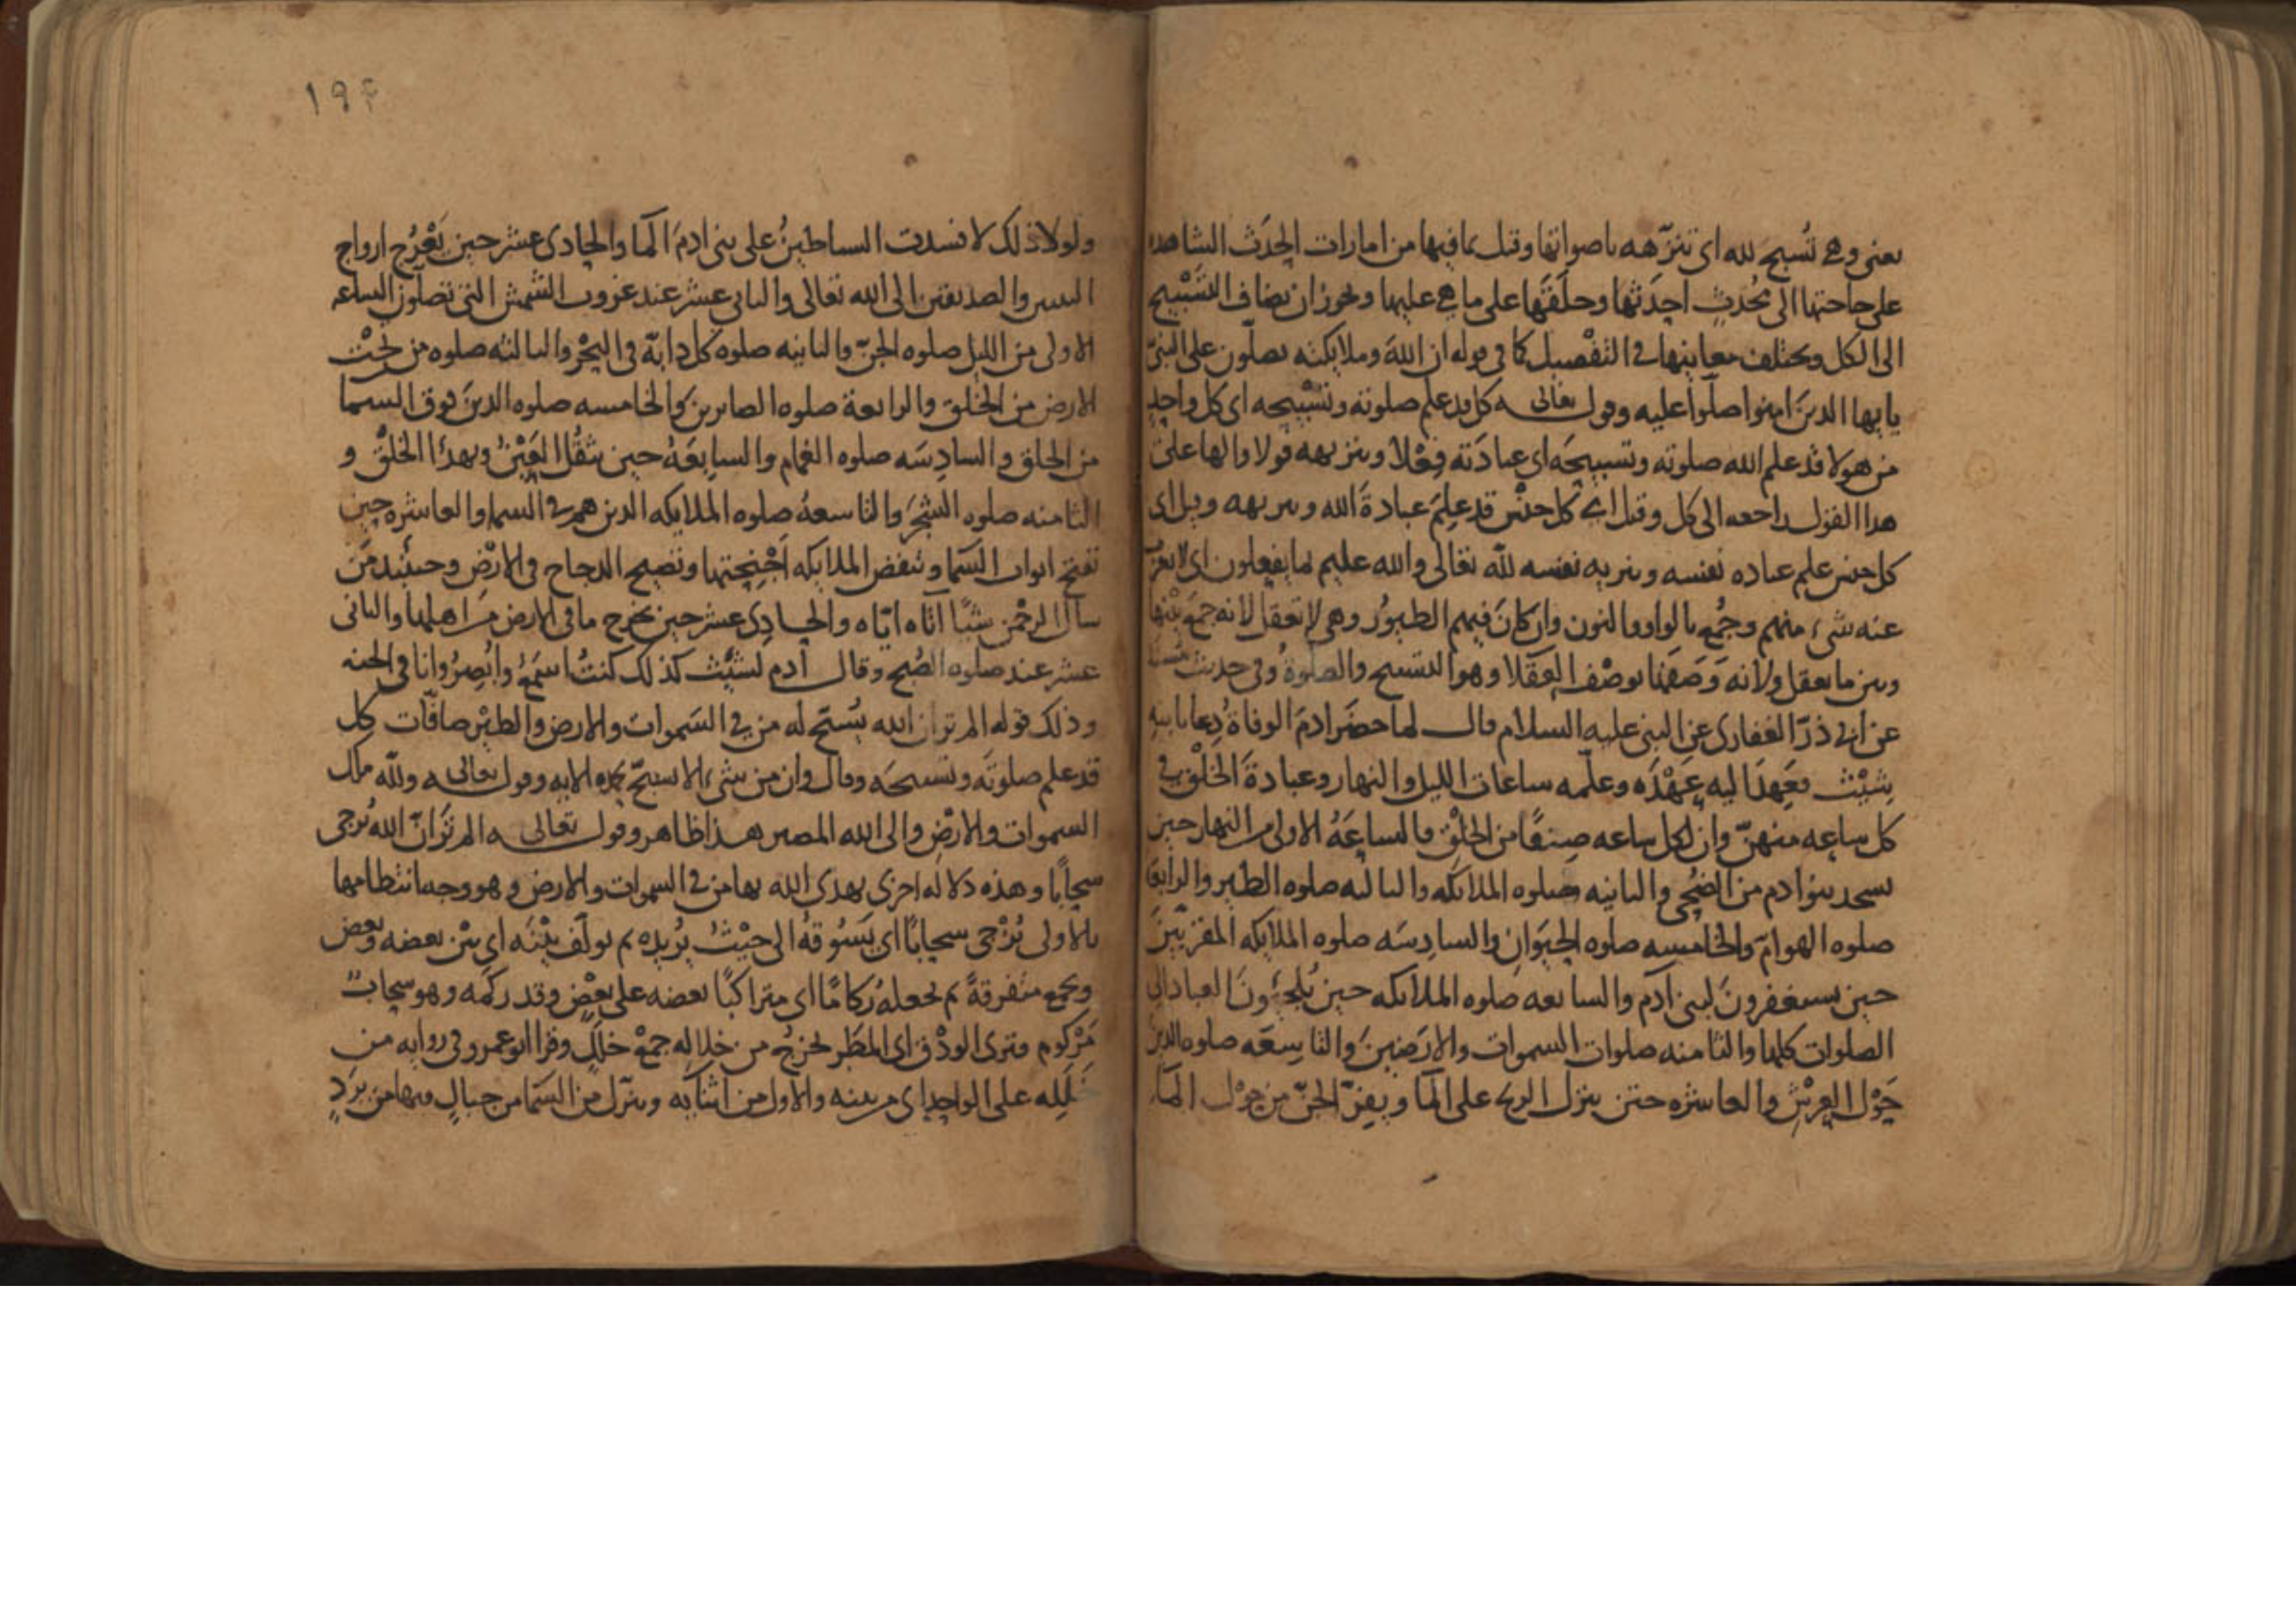 يعني وهي تسبح لله اي تنزهه باصواتها وقيل بما فيها من امارات الحدث الشاهده
على حاجتها الى مُحدِثٍ احدثها وخلقها على ما هي عليها ويجوز ان يضاف التسبيح
الى الكل ويختلف معانيها في التفصيل كما في قوله ان الله وملايكته يصلون على النبي
يا ايها الذين امنوا صلوا عليه وقول تعالى كل قد علم صلوته وتسبيحه اي كل واحد
من هولا قد علم الله صلوته وتسبيحه اي عبادته فعلا وتنزيهه قولا والها على
هذا القول راجعه الى كل وقيل اي كل جنس قد علم عبادة الله وتنزيهه وقيل اي
كل جنس علم عباده نفسه وتنزيه نفسه لله تعالى والله عليم بما يفعلون اي لا يعزب
عنه شيء منهم وجُمع بالواو والنون وان كان فيهم الطيور وهي لا تعقل لانه جمع بينها
وبين ما يعقل ولانه وصفها بوصف العقلا وهو التسبيح والصلوة وفي حديث
عن ابي ذرّ الغفاري عن النبي عليه السلام قال لما حضر ادم الوفاة دعا بابنه
شيث فعهد اليه عهده وعلّمه ساعات الليل والنهار وعبادة الخلق في
كل ساعه منهنّ وان لكل ساعه صنفًا من الخلق فالساعة الاولى من النهار حين
يسجد بنو ادم من الضحى والثانيه صلوه الملايكه والثالثه صلوه الطير والرابعة
صلوه الهوامّ والخامسه صلوه الحيوان والسادسه صلوه الملايكه المقربين
حين يستغفرون لبني آدم والسابعه صلوه الملايكه حين يُلجِئون العباد الى
الصلوات كلها والثامنه صلوات السموات والارضين والتاسعه صلوه الذين
حول العرش والعاشره حين ينزل الريح على الما ويفرّ الجنّ من حول الما
١٩٤
ولولا ذلك لافسدت الشياطين على بني ادم الما والحادي عشر حين يَعْرُج ارواح
النبيين والصديقين الى الله تعالى والثاني عشر عند غروب الشمس التي تصلون الساعه
الاولى من الليل صلوه الجنّ والثانيه صلوه كل دابّة في البحر والثالثه صلوه من تحت
الارض من الخلق والرابعة صلوه الصابرين والخامسه صلوه الذين فوق السما
من الخلق والسادسه صلوه الغمام والسابعة حين تثقل العين ويهدأ الخلق و
الثامنه صلوه الشجر والتاسعة صلوه الملايكه الذين هم في السما والعاشره حين
تفتح ابواب السما وتنفض الملايكه اجنحتها وتصيح الدجاج في الارض وحينيذ من
سأل الرحمن شيئًا آتاه ايّاه والحادي عشر حين يخرج ما في الارض من اهلها والثاني
عشر عند صلوه الصبح وقال آدم لشيث كذلك كنت اسمع وابصر وانا في الجنه
وذلك قوله الم تر ان الله يسبّح له من في السموات والارض والطير صافّات كل
قد علم صلوته وتسبيحه وقال وان من شيء الا يسبّح بحمده الايه وقول تعالى ولله ملك
السموات والارض والى الله المصير هذا ظاهر وقول تعالى الم تر انّ الله يزجي
سحابًا وهذه دلاله اخرى يهدي الله بها من في السموات والارض وهو وجه انتظامها
بالاولى يُزْجي سحابًا اي يسوقه الى حيث يريده ثم يولّف بينه اي بين بعضه وبعض
ويجمع متفرقة ثم يجعله ركامًا اي متراكبًا بعضه على بعض وقد ركمه وهو سحاب
مَرْكوم فترى الودق اي المطر يخرج من خلاله جمع خلل وقرا ابو عمرو في روايه من
خلَلِه على الواحد اي من بينه والاول من اثنايه وينزّل من السما من جبال فيها من بردٍ